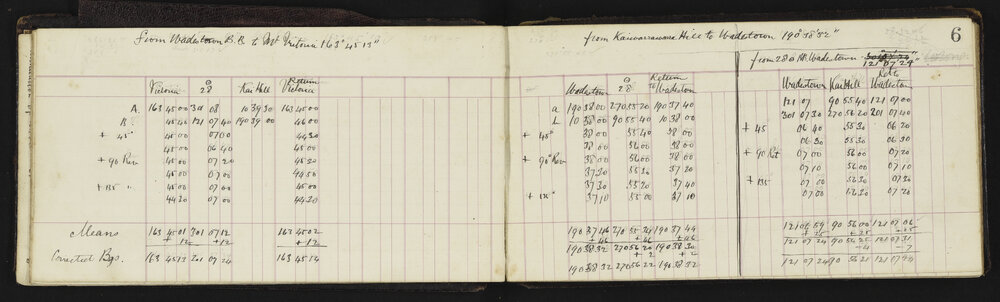 6
from Wadestown B.B. to Mt Victoria 163° 45' 13"
Victoria 28 Kai Hill Return Victoria
A. 163 45 00 301 08 10 39 30 163 45 00
B. 45 40 121 07 40 190 39 00 46 00
+ 45° 45 00 07 00 44 30
45 00 06 40 45 00
+ 90 Rev 45 00 07 20 45 20
45 00 07 00 44 50
+ 135 " 45 00 07 00 45 00
44 30 07 00 44 30
Means 163 45 01 301 07 12 163 45 02
+ 12 + 12 + 12
Corrected Bgs. 163 45 13 301 07 24 163 45 14
from Kaiwarrawara Hill to Wadestown 190° 38' 32"
Wadestown 28 Return to Wadestown
a 190 38 00 270 55 20 190 37 40
L 10 38 00 90 55 40 10 38 00
+ 45° 38 00 55 40 38 00
38 00 56 00 38 00
+ 90° Rev 38 00 56 00 38 00
37 30 55 30 37 30
37 30 55 20 37 40
+ 135° 37 10 55 00 37 10
190 37 46 270 55 34 190 37 44
+ 46 + 46 + 46
190 38 32 270 56 20 190 38 30
+ 2 + 2
190 38 32 270 56 22 190 38 32
from 28 to Wadestown
121° 07' 24"
Wadestown Kai Hill Retn Wadestown
121 07 90 55 40 121 07 00
301 07 30 270 56 20 301 07 40
+ 45 06 40 55 30 06 20
06 30 55 30 06 30
+ 90 Ret 07 00 56 00 07 20
07 10 56 00 07 10
+ 135 07 00 56 30 07 30
07 00 56 30 07 20
121 06 59 90 56 00 121 07 06
+ 25 + 25 + 25
121 07 24 90 56 25 121 07 31
- 4 - 7
121 07 24 90 56 21 121 07 24